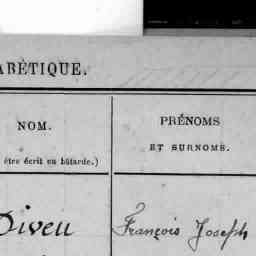 ABÈTIQUE.
NOM.
être écrit en bâtarde.)
PRÉNOMS
ET SURNOMS.
Diveu François Joseph